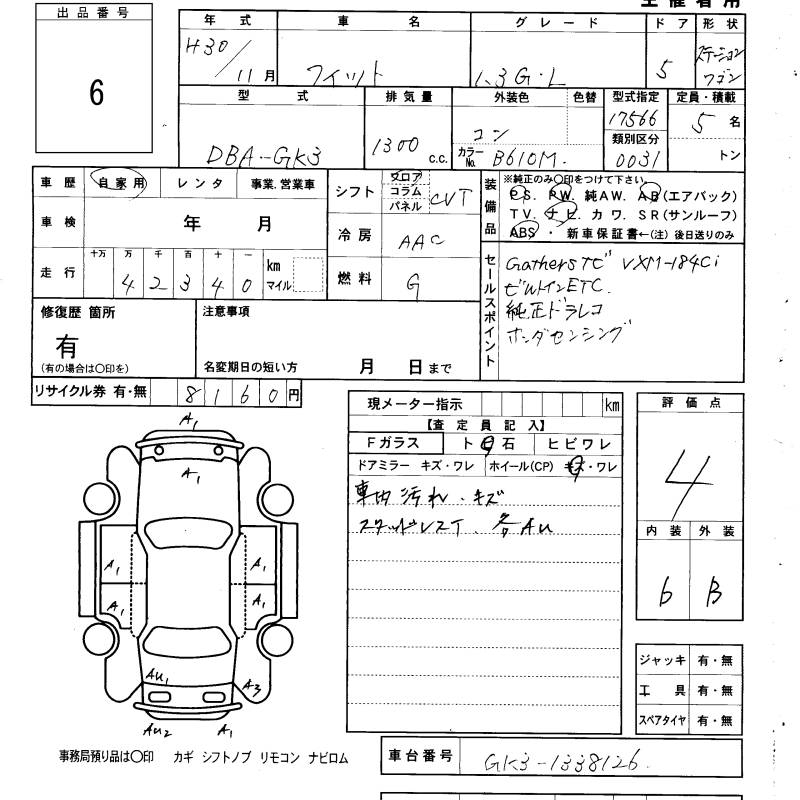 主催者用
出品番号
6
年式 車名 グレード ドア 形状
H30/11月 フィット 1.3G・L 5 ステーションワゴン
型式 排気量 外装色 色替 型式指定 定員・積載
DBA-GK3 1300 c.c. コン 17566 5名
カラーNo. B610M. 類別区分 0031 トン
車歴 自家用 レンタ 事業.営業車
車検 年 月
走行 十万 万 千 百 十 一 km マイル
4 2 3 4 0
シフト フロア コラム パネル CVT
冷房 AAC
燃料 G
装備品 ※純正のみ〇印をつけて下さい。
PS. PW. 純AW. AB(エアバック)
TV. ナビ. カワ. SR(サンルーフ)
ABS ・ 新車保証書←(注) 後日送りのみ
セールスポイント
Gathersナビ VXM-184Ci
ビルトインETC.
純正ドラレコ
ホンダセンシング
修復歴 箇所
有
(有の場合は〇印を)
注意事項
名変期日の短い方 月 日まで
リサイクル券 有・無 8160円
現メーター指示 km
【査定員記入】
Fガラス ト石 ヒビワレ
ドアミラー キズ・ワレ ホイール(CP) キズ・ワレ
車内汚れ、キズ
スタッドレスT、各AU
評価点
4
内装 外装
6 B
ジャッキ 有・無
工具 有・無
スペアタイヤ 有・無
A1
A1
A1 A1
A1 A1
AU1 A3
AU2 A1
事務局預り品は〇印 カギ シフトノブ リモコン ナビロム
車台番号 GK3-1338126.